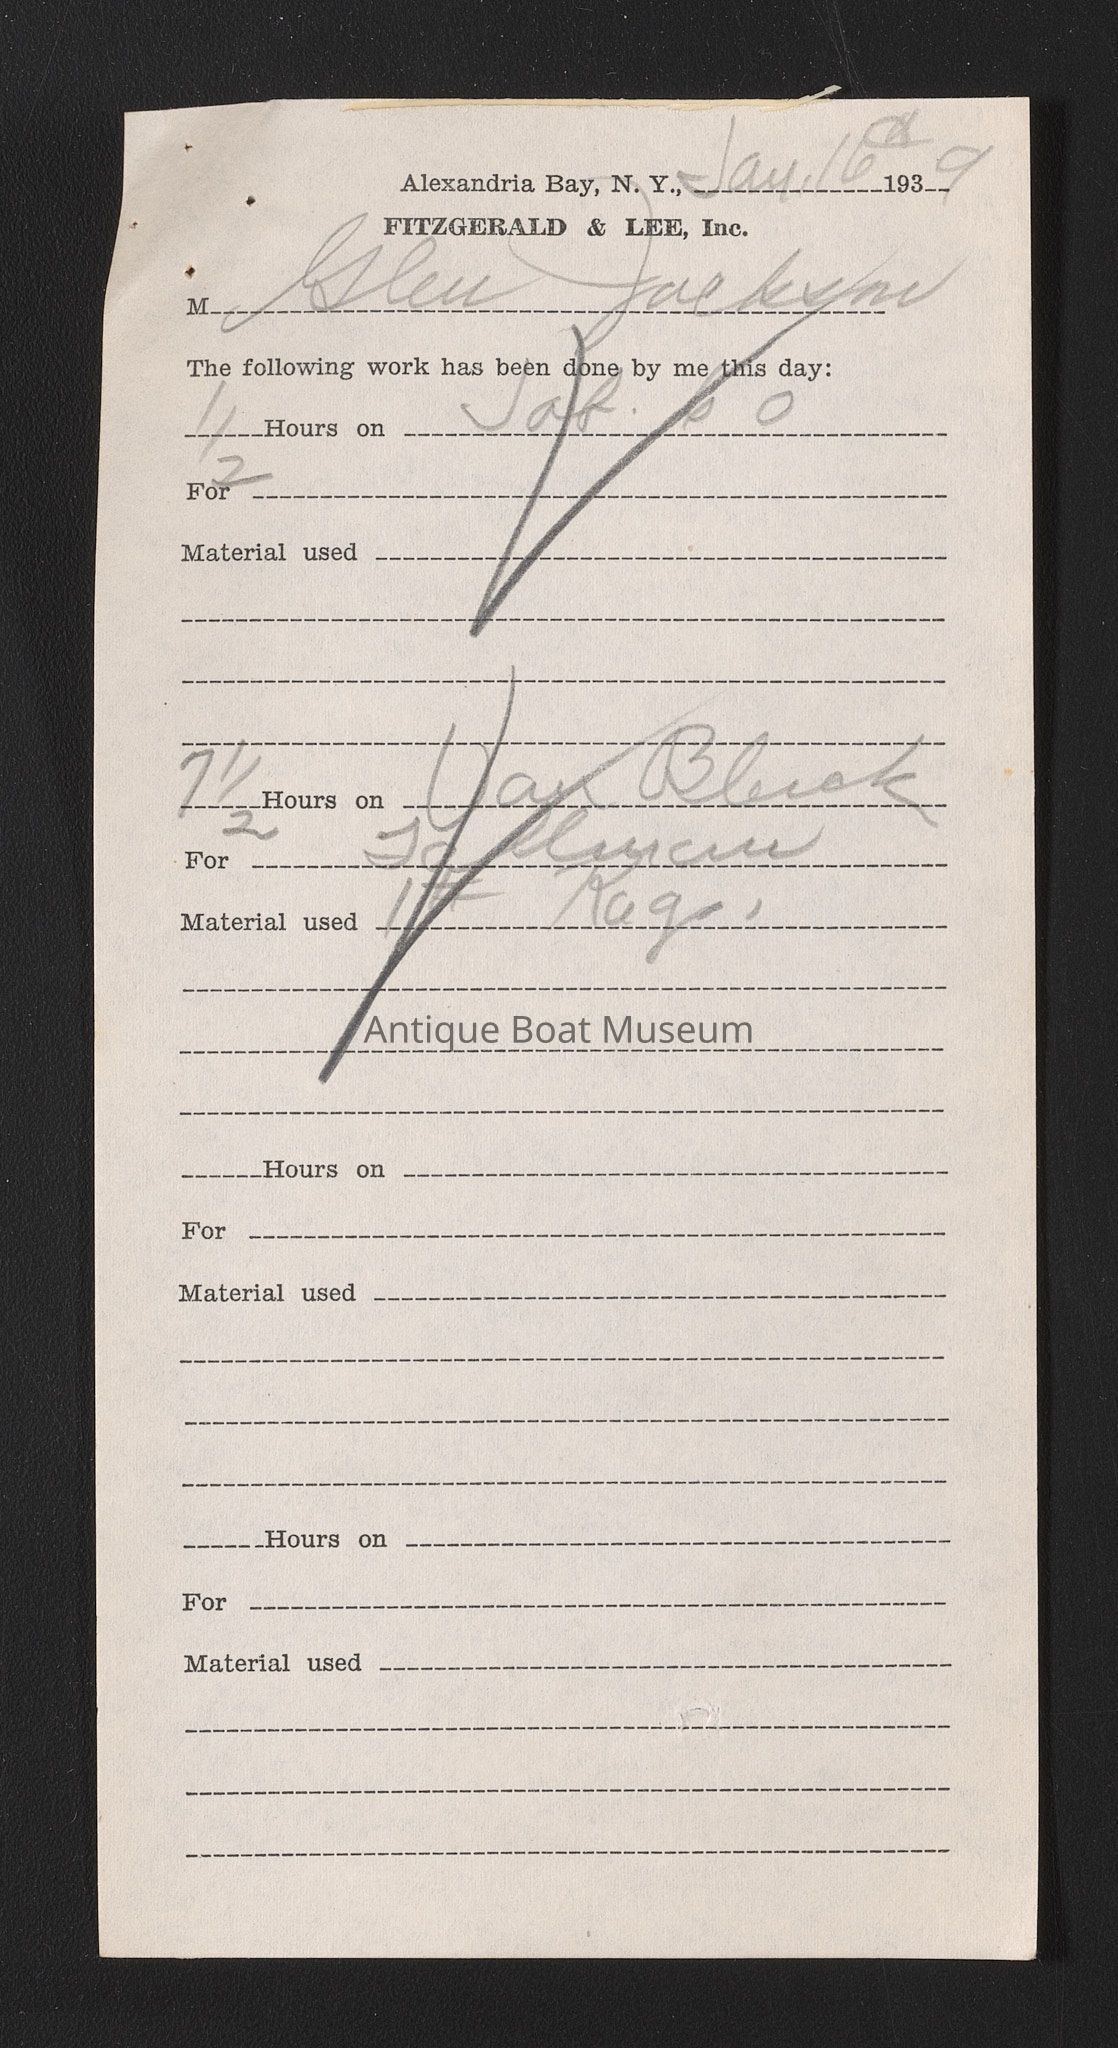 Alexandria Bay, N. Y., Jan. 16 1939
FITZGERALD & LEE, Inc.
M Glen Jackson
The following work has been done by me this day:
1/2 Hours on Job.
For
Material used
7 1/2 Hours on Van Bleck
For
Material used 1# Rags.
Antique Boat Museum
Hours on
For
Material used
Hours on
For
Material used